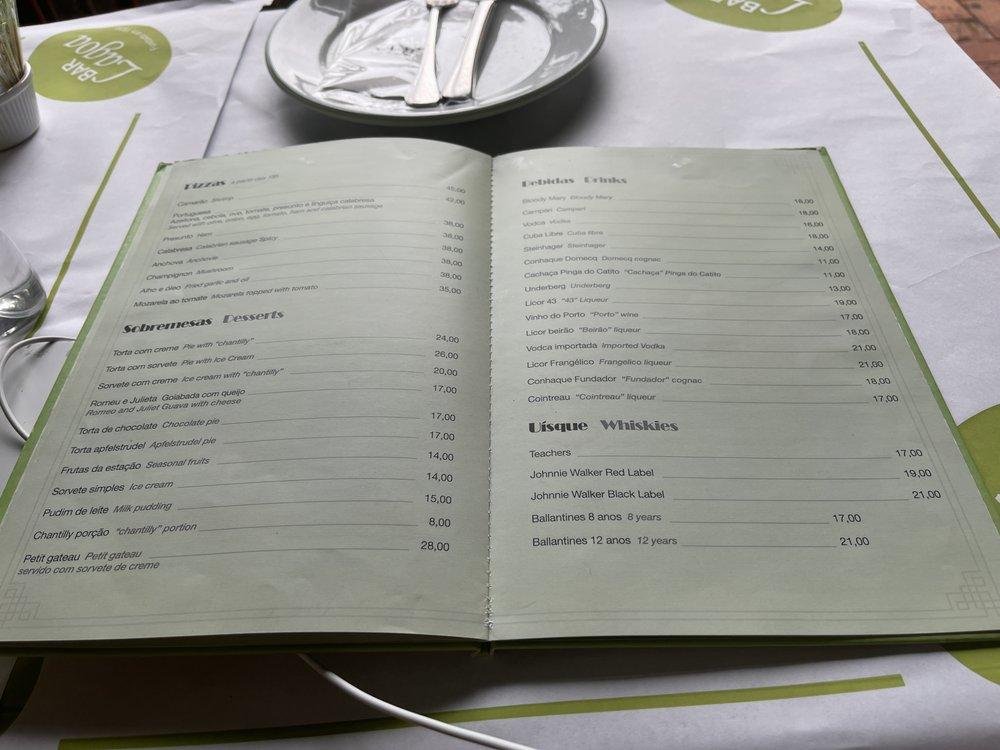 BAR
Lagoa
BAR
L
Pizzas a partir das 18h
Camarão Shrimp 45,00
Portuguesa 42,00
Azeitona, cebola, ovo, tomate, presunto e linguiça calabresa
Served with olive, onion, egg, tomato, ham and calabrian sausage
Presunto Ham 38,00
Calabresa Calabrian sausage Spicy 38,00
Anchova Anchovie 38,00
Champignon Mushroom 38,00
Alho e óleo Fried garlic and oil 38,00
Mozarela ao tomate Mozarela topped with tomato 35,00
Sobremesas Desserts
Torta com creme Pie with "chantilly" 24,00
Torta com sorvete Pie with Ice Cream 26,00
Sorvete com creme Ice cream with "chantilly" 20,00
Romeu e Julieta Goiabada com queijo 17,00
Romeo and Juliet Guava with cheese
Torta de chocolate Chocolate pie 17,00
Torta apfelstrudel Apfelstrudel pie 17,00
Frutas da estação Seasonal fruits 14,00
Sorvete simples Ice cream 14,00
Pudim de leite Milk pudding 15,00
Chantilly porção "chantilly" portion 8,00
Petit gateau Petit gateau 28,00
servido com sorvete de creme
Bebidas Drinks
Bloody Mary Bloody Mary 18,00
Campari Campari 18,00
Vodca Vodka 16,00
Cuba Libre Cuba libre 18,00
Steinhager Steinhager 14,00
Conhaque Domecq Domecq cognac 11,00
Cachaça Pinga do Catito "Cachaça" Pinga do Catito 11,00
Underberg Underberg 13,00
Licor 43 "43" Liqueur 19,00
Vinho do Porto "Porto" wine 17,00
Licor beirão "Beirão" liqueur 18,00
Vodca importada Imported Vodka 21,00
Licor Frangélico Frangelico liqueur 21,00
Conhaque Fundador "Fundador" cognac 18,00
Cointreau "Cointreau" liqueur 17,00
Uísque Whiskies
Teachers 17,00
Johnnie Walker Red Label 19,00
Johnnie Walker Black Label 21,00
Ballantines 8 anos 8 years 17,00
Ballantines 12 anos 12 years 21,00